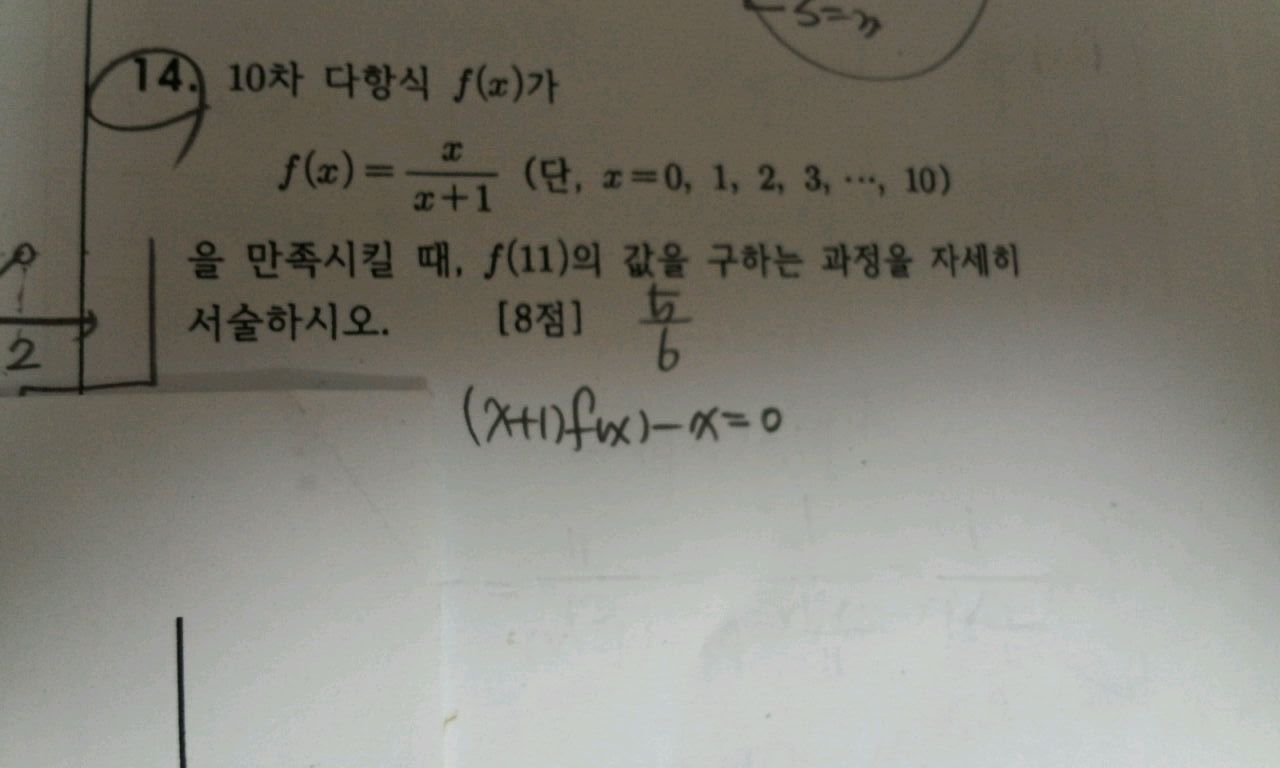 5=n
14. 10차 다항식 f(x)가
f(x)=\frac{x}{x+1} (단, x=0, 1, 2, 3, ⋯, 10)
을 만족시킬 때, f(11)의 값을 구하는 과정을 자세히
서술하시오. [8점] \frac{5}{6}
2
(x+1)f(x)-x=0